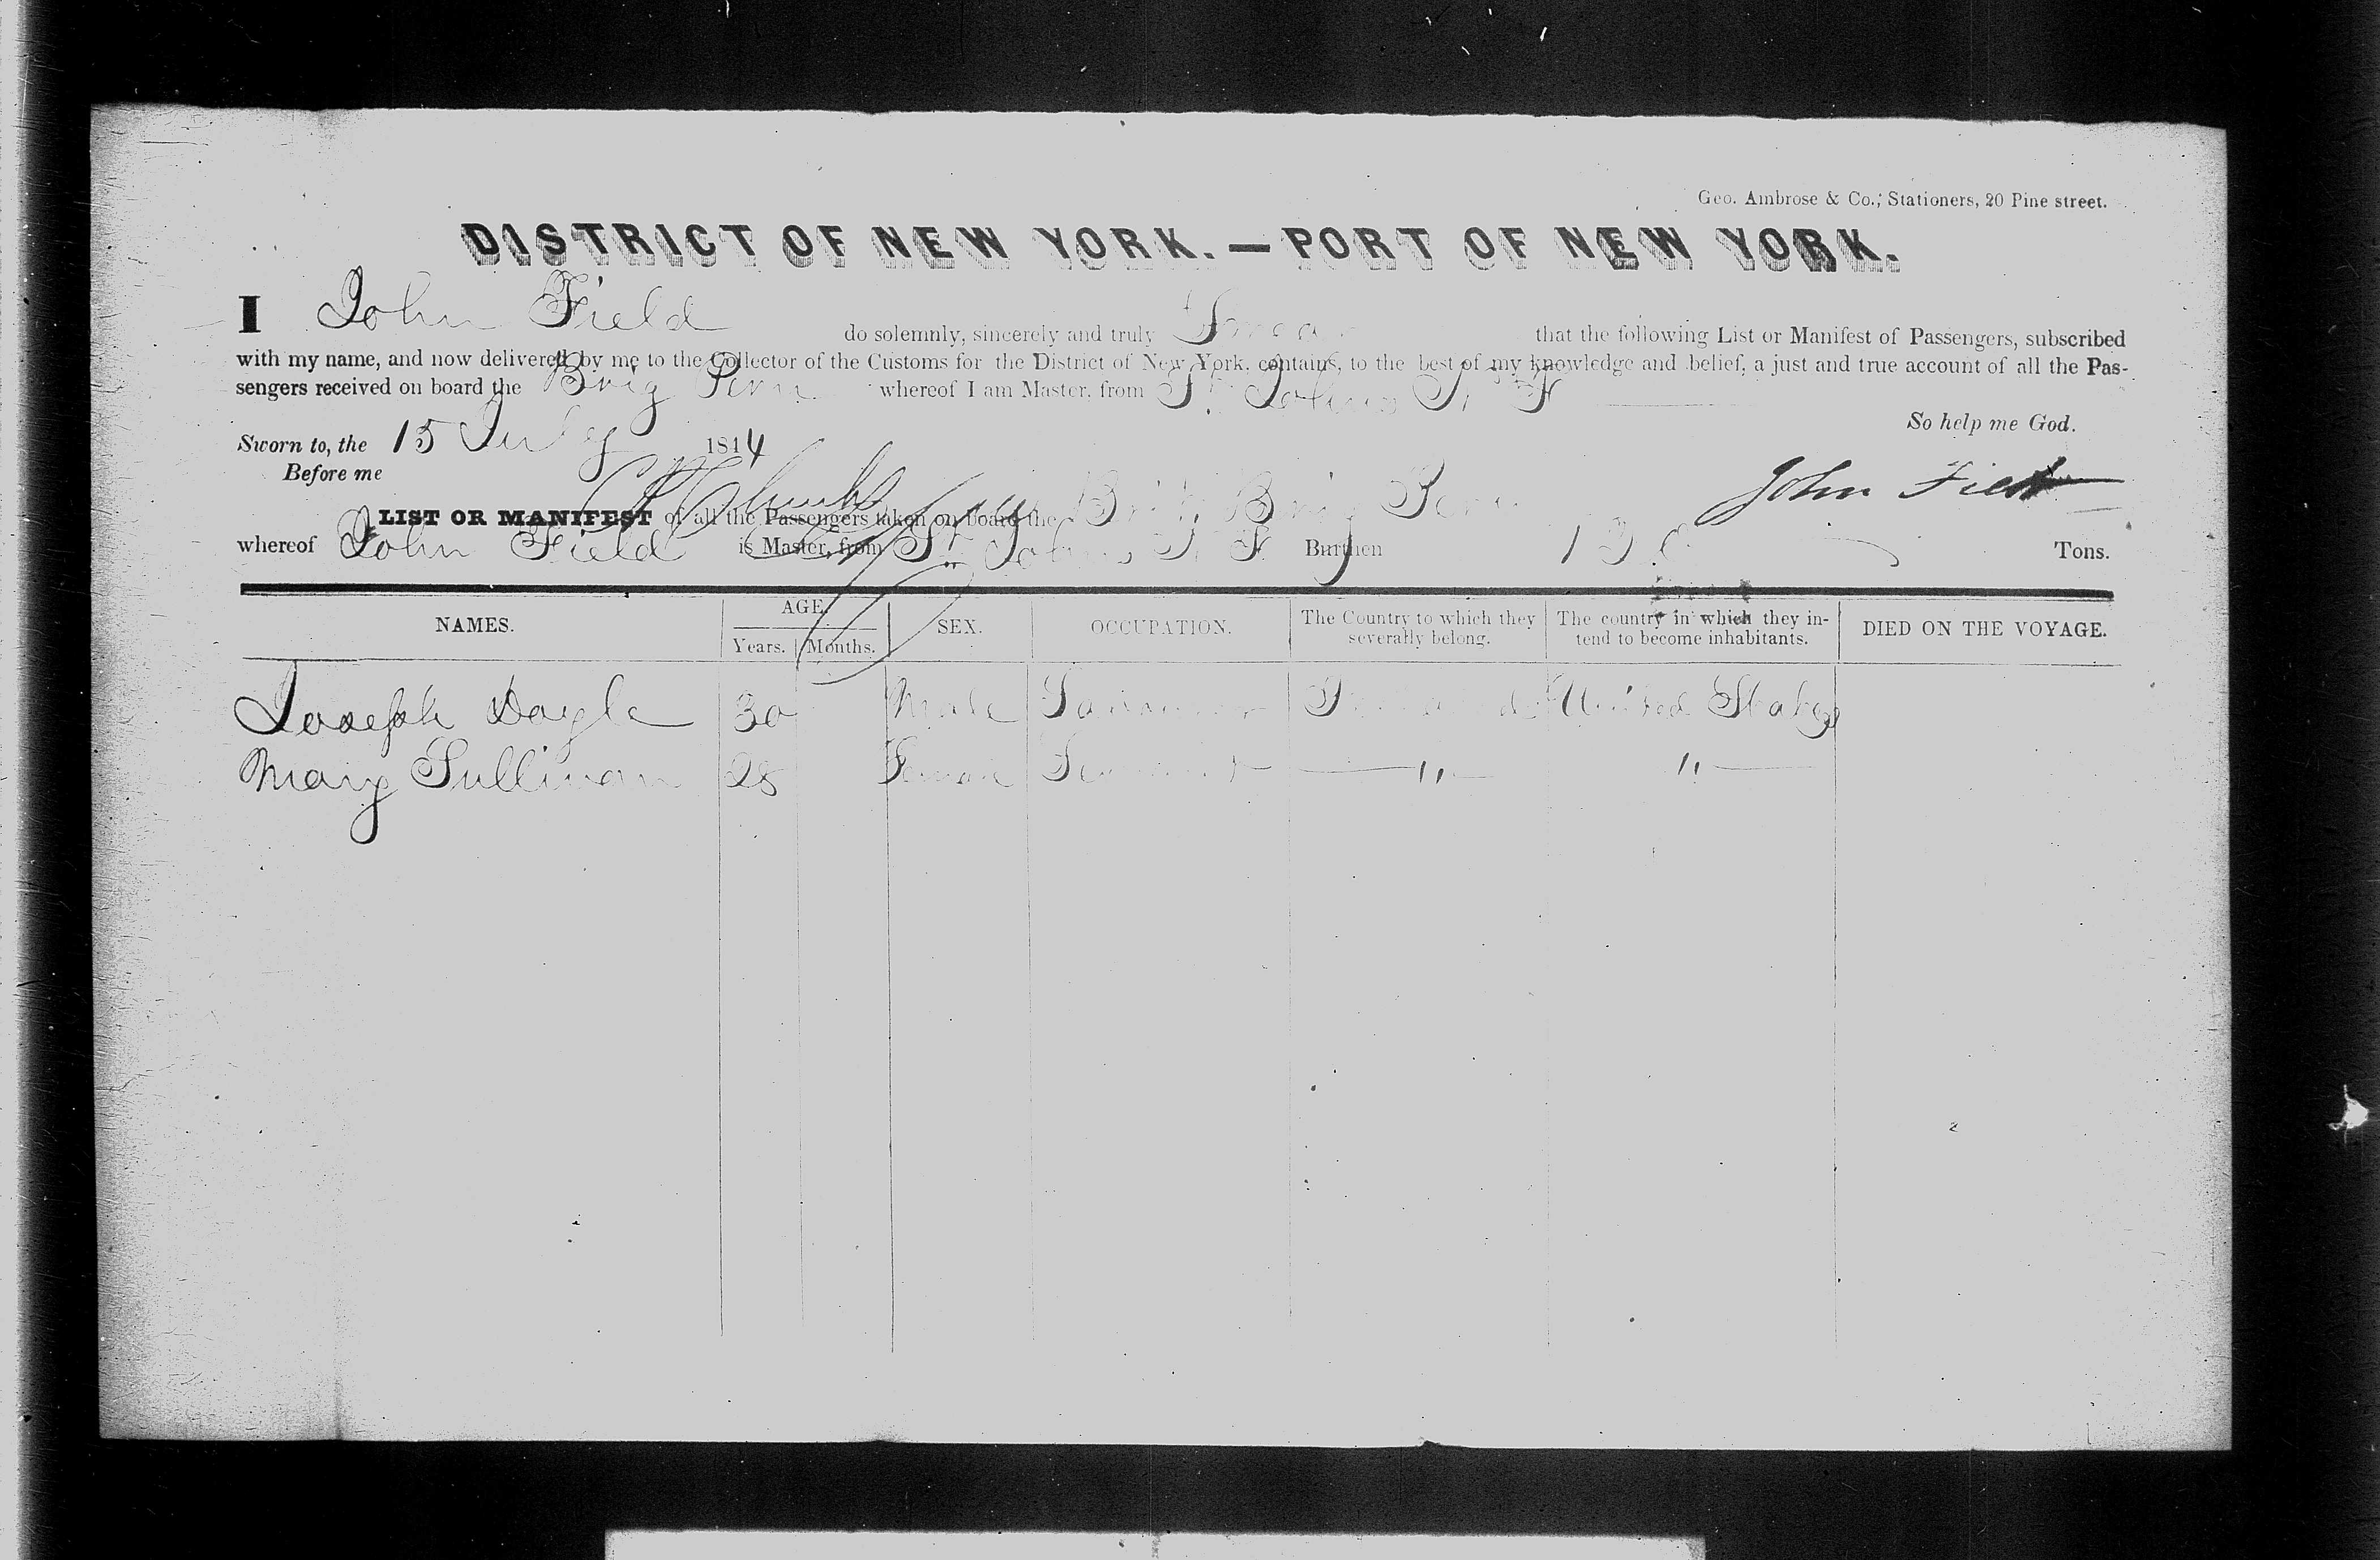 Geo. Ambrose & Co., Stationers, 20 Pine street.
DISTRICT OF NEW YORK.—PORT OF NEW YORK.
I John Field do solemnly, sincerely and truly Swear that the following List or Manifest of Passengers, subscribed
with my name, and now delivered by me to the Collector of the Customs for the District of New York, contains, to the best of my knowledge and belief, a just and true account of all the Pas-
sengers received on board the Brig whereof I am Master, from St. Johns
So help me God.
Sworn to, the 15 July 1844
Before me
John Field
LIST OR MANIFEST of all the Passengers taken on board the Brit. Brig
whereof John Field is Master, from St. Johns Burthen Tons.
NAMES. AGE. SEX. OCCUPATION. The Country to which they severally belong. The country in which they in-tend to become inhabitants. DIED ON THE VOYAGE.
Years. Months.
Joseph Doyle 30 Male United States
Mary Sullivan 28 Female Servant " "